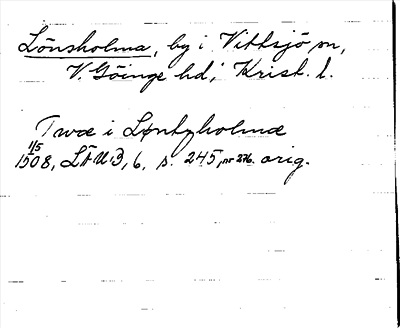 Lönsholma, by i Vittsjö sn,
V. Göinge hd, Krist. l.
Twæ i Løntzholmæ
11/5
1508, LÄUB, 6, s. 245, nr 276. orig.